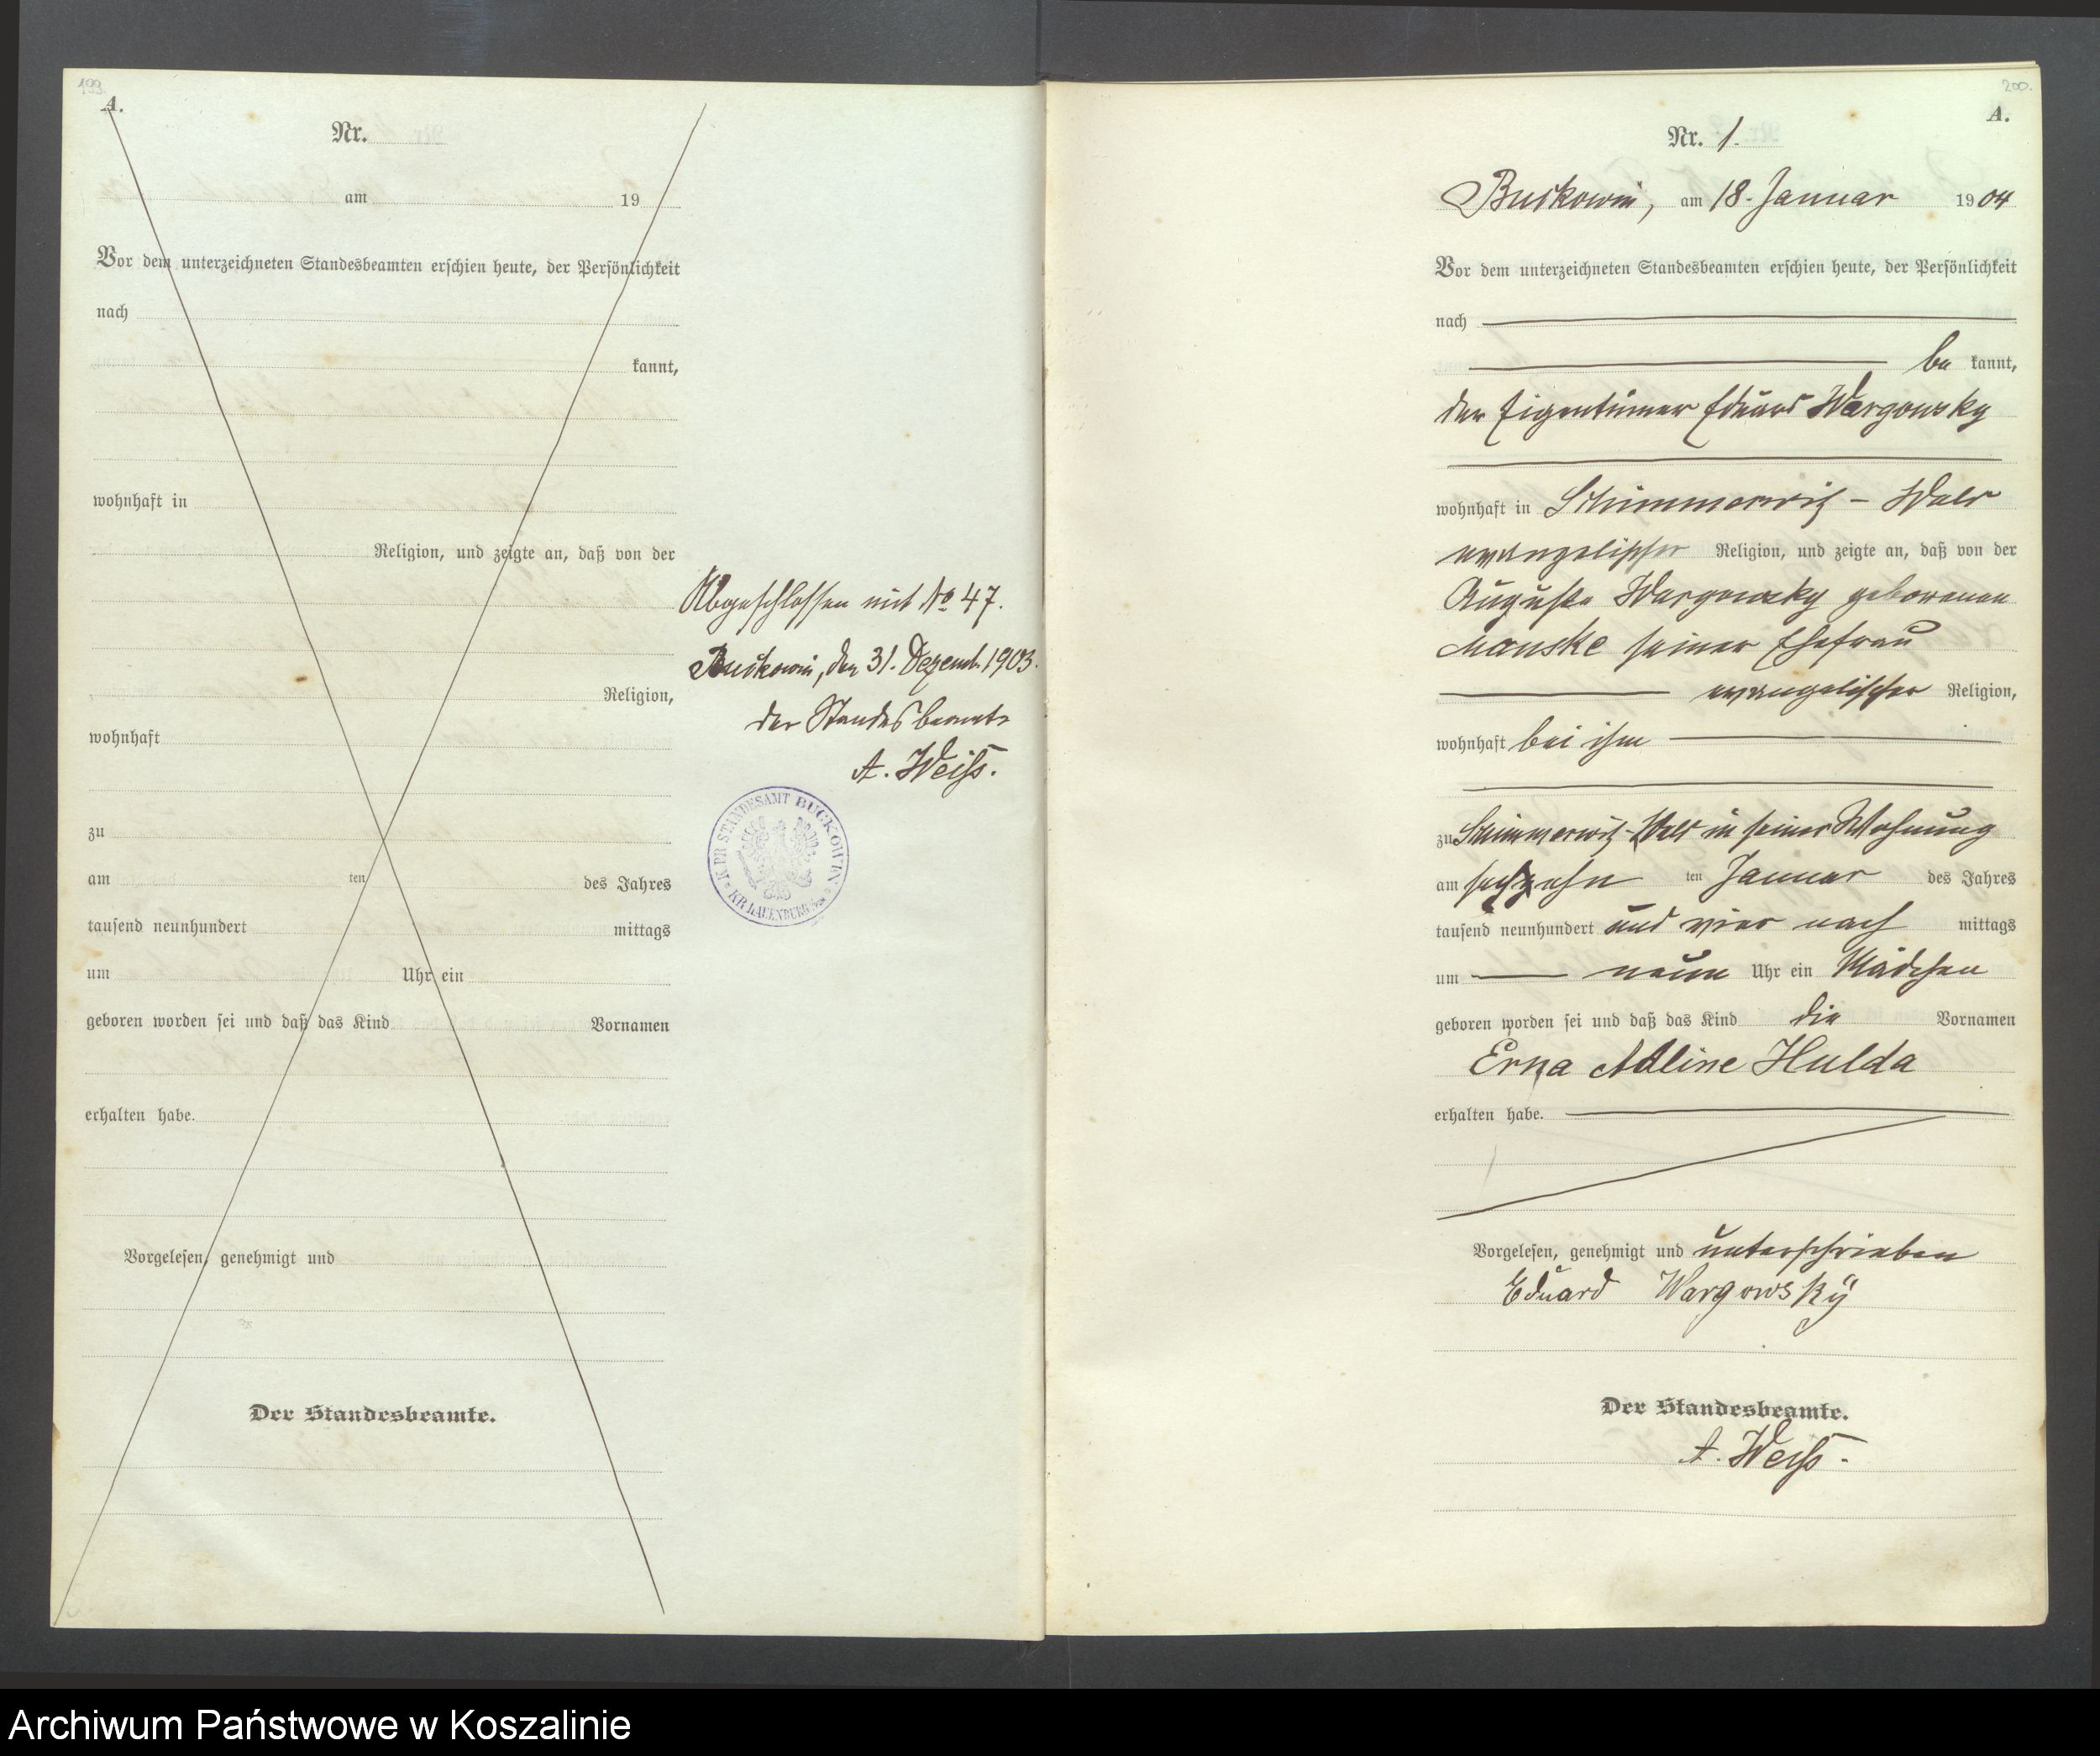 199.
A.
Nr.
am 19
Vor dem unterzeichneten Standesbeamten erschien heute, der Persönlichkeit
nach
kannt,
wohnhaft in
Religion, und zeigte an, daß von der
Religion,
wohnhaft
zu
am ten des Jahres
tausend neunhundert mittags
um Uhr ein
geboren worden sei und daß das Kind Vornamen
erhalten habe.
Vorgelesen, genehmigt und
Der Standesbeamte.
Abgeschlossen mit No 47.
Buckowin, den 31. Dezemb. 1903.
Der Standesbeamte
A. Weiß.
K. PR. STANDESAMT BUCKOWIN
KR. LAUENBURG
200.
A.
Nr. 1.
Buckowin, am 18. Januar 1904
Vor dem unterzeichneten Standesbeamten erschien heute, der Persönlichkeit
nach
be kannt,
der Eigentümer Eduard Wargowsky
wohnhaft in Schimmerwitz - Wald
evangelischer Religion, und zeigte an, daß von der
Auguste Wargowsky geborenen
Manske seiner Ehefrau
evangelischer Religion,
wohnhaft bei ihm
zu Schimmerwitz-Wald in seiner Wohnung
am sechzehn ten Januar des Jahres
tausend neunhundert und vier nach mittags
um neun Uhr ein Mädchen
geboren worden sei und daß das Kind die Vornamen
Erna Adline Hulda
erhalten habe.
Vorgelesen, genehmigt und unterschrieben
Eduard Wargowsky
Der Standesbeamte.
A. Weiß.
Archiwum Państwowe w Koszalinie